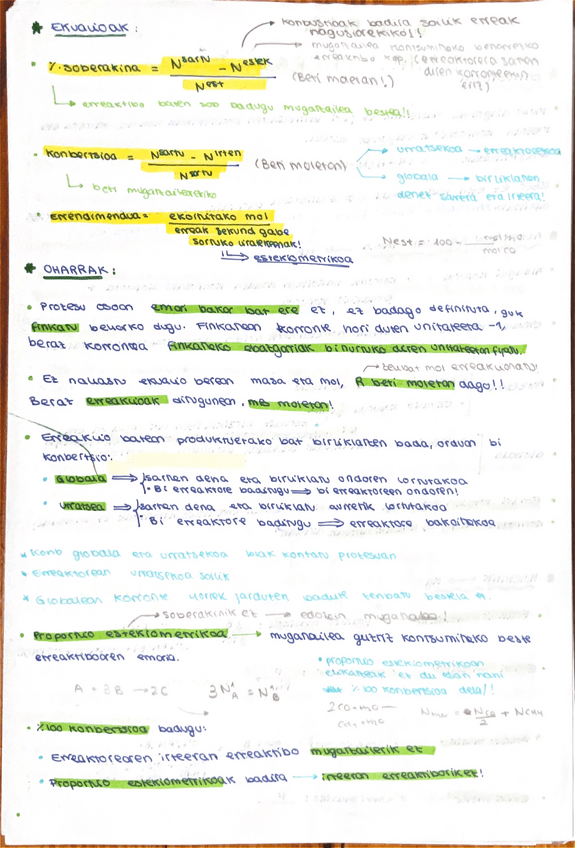 * EKUAZIOAK:
konbustioak badira soilik erreak nagusiarekiko!!
mugatzailea kontsumitzeko beharrezko
erreaktibo
% soberakina = N sartu - N estek / N est (Beti moletan!)
erreaktibo baten sob badugu mugatzailea bestea!!
Konbertsioa = N sartu - N irten / N sartu (Beti moletan)
urratsekoa → erreaktorekoa
globala → birziklatzen
denez sarrera eta irteera!
beti mugatzailearekiko
errendimendua = ekoiztutako mol / erreak sekund gabe
soruko
estekiometrikoa
Nest = 100
* OHARRAK:
• Prozesu osoan emari bakar bat ere ez, ez badago definituta, guk
finkatu beharko dugu. Finkatzean korronte hori duten unitateeta -1,
beraz korrontea finkatzeko ebatgarriak
• Ez nahastu ekuazio berean masa eta mol, R beti moletan dago!!
Beraz erreakzioak ditugunean, MB moletan!
• Erreakzio baten produktuetako bat birziklatzen bada, orduan bi
konbertsio:
• Globala ⇒ sartzen dena eta birziklatu ondoren lortutakoa
• Bi erreaktore baditugu ⇒ bi erreaktoreen ondoren!
• urratsea ⇒ sartzen dena eta birziklatu aurretik lortutakoa
• Bi erreaktore baditugu ⇒ erreaktore bakoitzekoa
* Konb globala eta urratsekoa biak kontatu prozesuan
* Erreaktorean urratsekoa soilik
* Globalean korronte horiek jarduten badute
soberakinik ez → edozein mugatzailea!
• Proportzio estekiometrikoa → mugatzailea guztiz kontsumitzeko beste
erreaktiboaren emaria.
• proportzio estekiometrikoan
elikatzeak ez du esan nahi
% 100 konbertsioa dela!!
A + 3B → 2C
3N_A = N_B
• %100 konbertsioa badugu:
• Erreaktorearen irteeran erreaktibo mugatzailerik ez
• Proportzio estekiometrikoak badira → irteeran erreaktiborik ez!